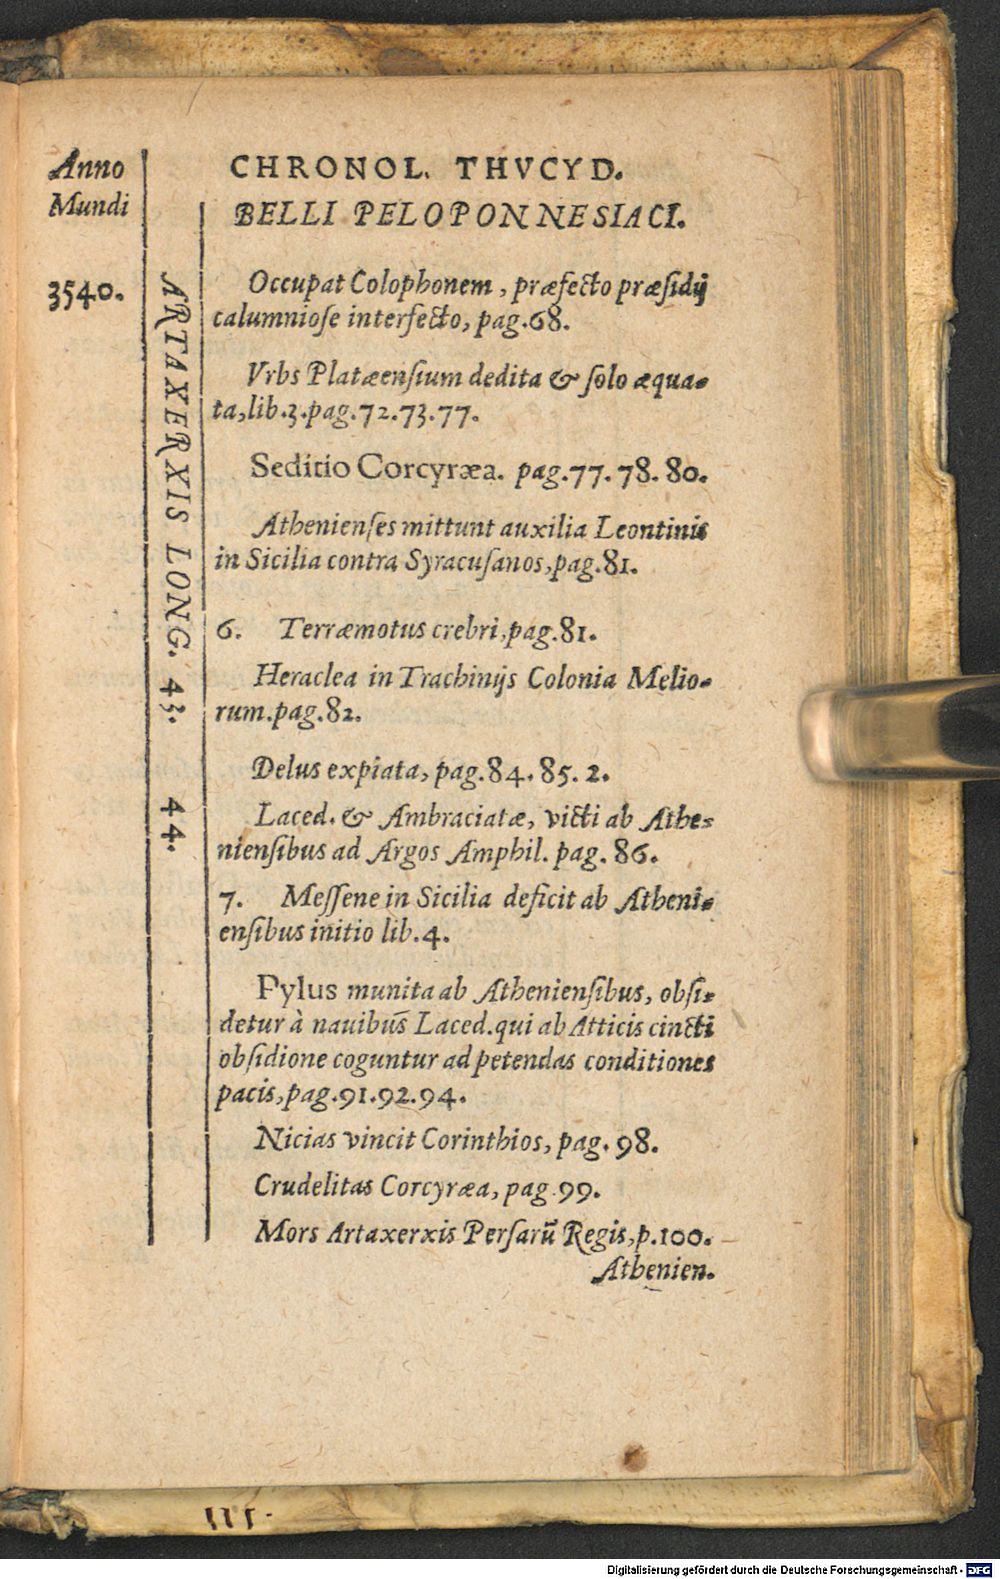 Anno
Mundi
3540.
ARTAXERXIS LONG. 43. 44.
CHRONOL. THVCYD.
BELLI PELOPONNESIACI.
Occupat Colophonem, præfecto præsidij
calumniose interfecto, pag.68.
Vrbs Platæensium dedita & solo æqua-
ta, lib.3.pag.72.73.77.
Seditio Corcyræa. pag.77.78.80.
Athenienses mittunt auxilia Leontinis
in Sicilia contra Syracusanos, pag.81.
6. Terræmotus crebri, pag.81.
Heraclea in Trachinijs Colonia Melio-
rum.pag.82.
Delus expiata, pag.84.85.2.
Laced. & Ambraciatæ, victi ab Athe-
niensibus ad Argos Amphil. pag. 86.
7. Messene in Sicilia deficit ab Atheni-
ensibus initio lib.4.
Pylus munita ab Atheniensibus, obsi-
detur à nauibus̃ Laced.qui ab Atticis cincti
obsidione coguntur ad petendas conditiones
pacis, pag.91.92.94.
Nicias vincit Corinthios, pag. 98.
Crudelitas Corcyræa, pag.99.
Mors Artaxerxis Persarũ Regis, p.100.
Athenien.
Digitalisierung gefördert durch die Deutsche Forschungsgemeinschaft - DFG